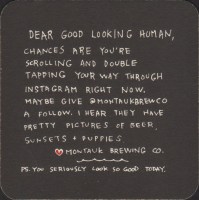 DEAR GOOD LOOKING HUMAN,
CHANCES ARE YOU'RE
SCROLLING AND DOUBLE
TAPPING YOUR WAY THROUGH
INSTAGRAM RIGHT NOW.
MAYBE GIVE @MONTAUKBREWCO
A FOLLOW. I HEAR THEY HAVE
PRETTY PICTURES OF BEER,
SUNSETS + PUPPIES.
MONTAUK BREWING CO.
PS. YOU SERIOUSLY LOOK SO GOOD TODAY.